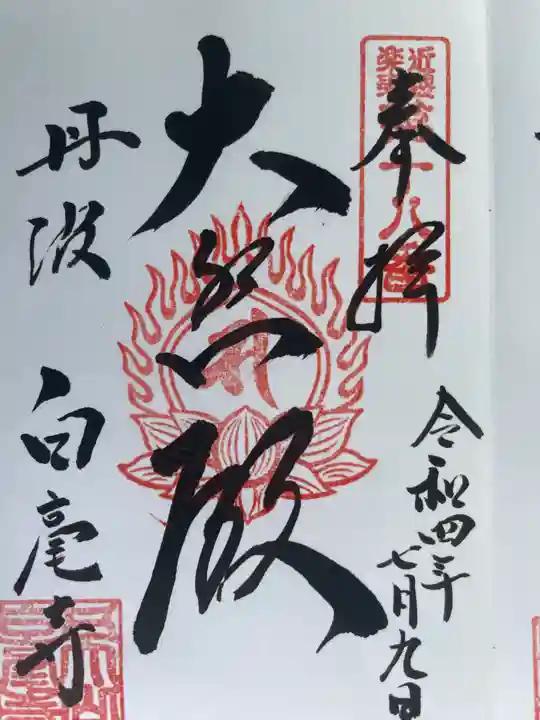 奉拝
近畿
楽寿
十八番
大悲殿
丹波 白毫寺
令和四年
七月九日